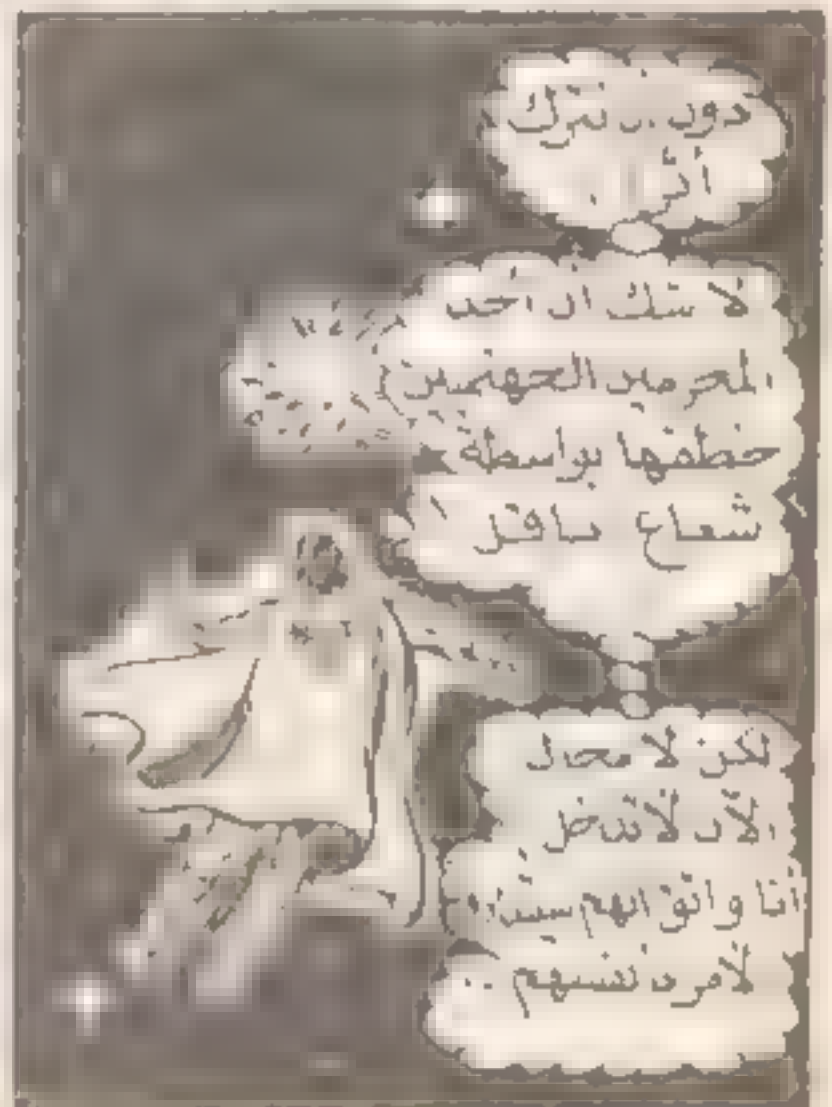 دون .. نترك
أثر
لا شك ان أحد
المجرمين الجهنميين
خطفها بواسطة
شعاع ناقل
لكن لا مجال
الآن لأتدخل
أنا واثق انهم
لأمره بنفسهم ..